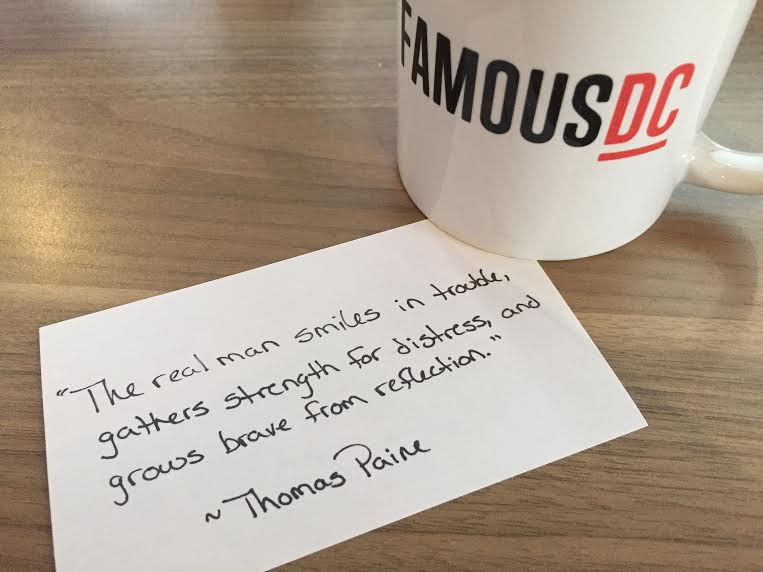 FAMOUSDC
"The real man smiles in trouble,
gathers strength for distress, and
grows brave from reflection."
~Thomas Paine